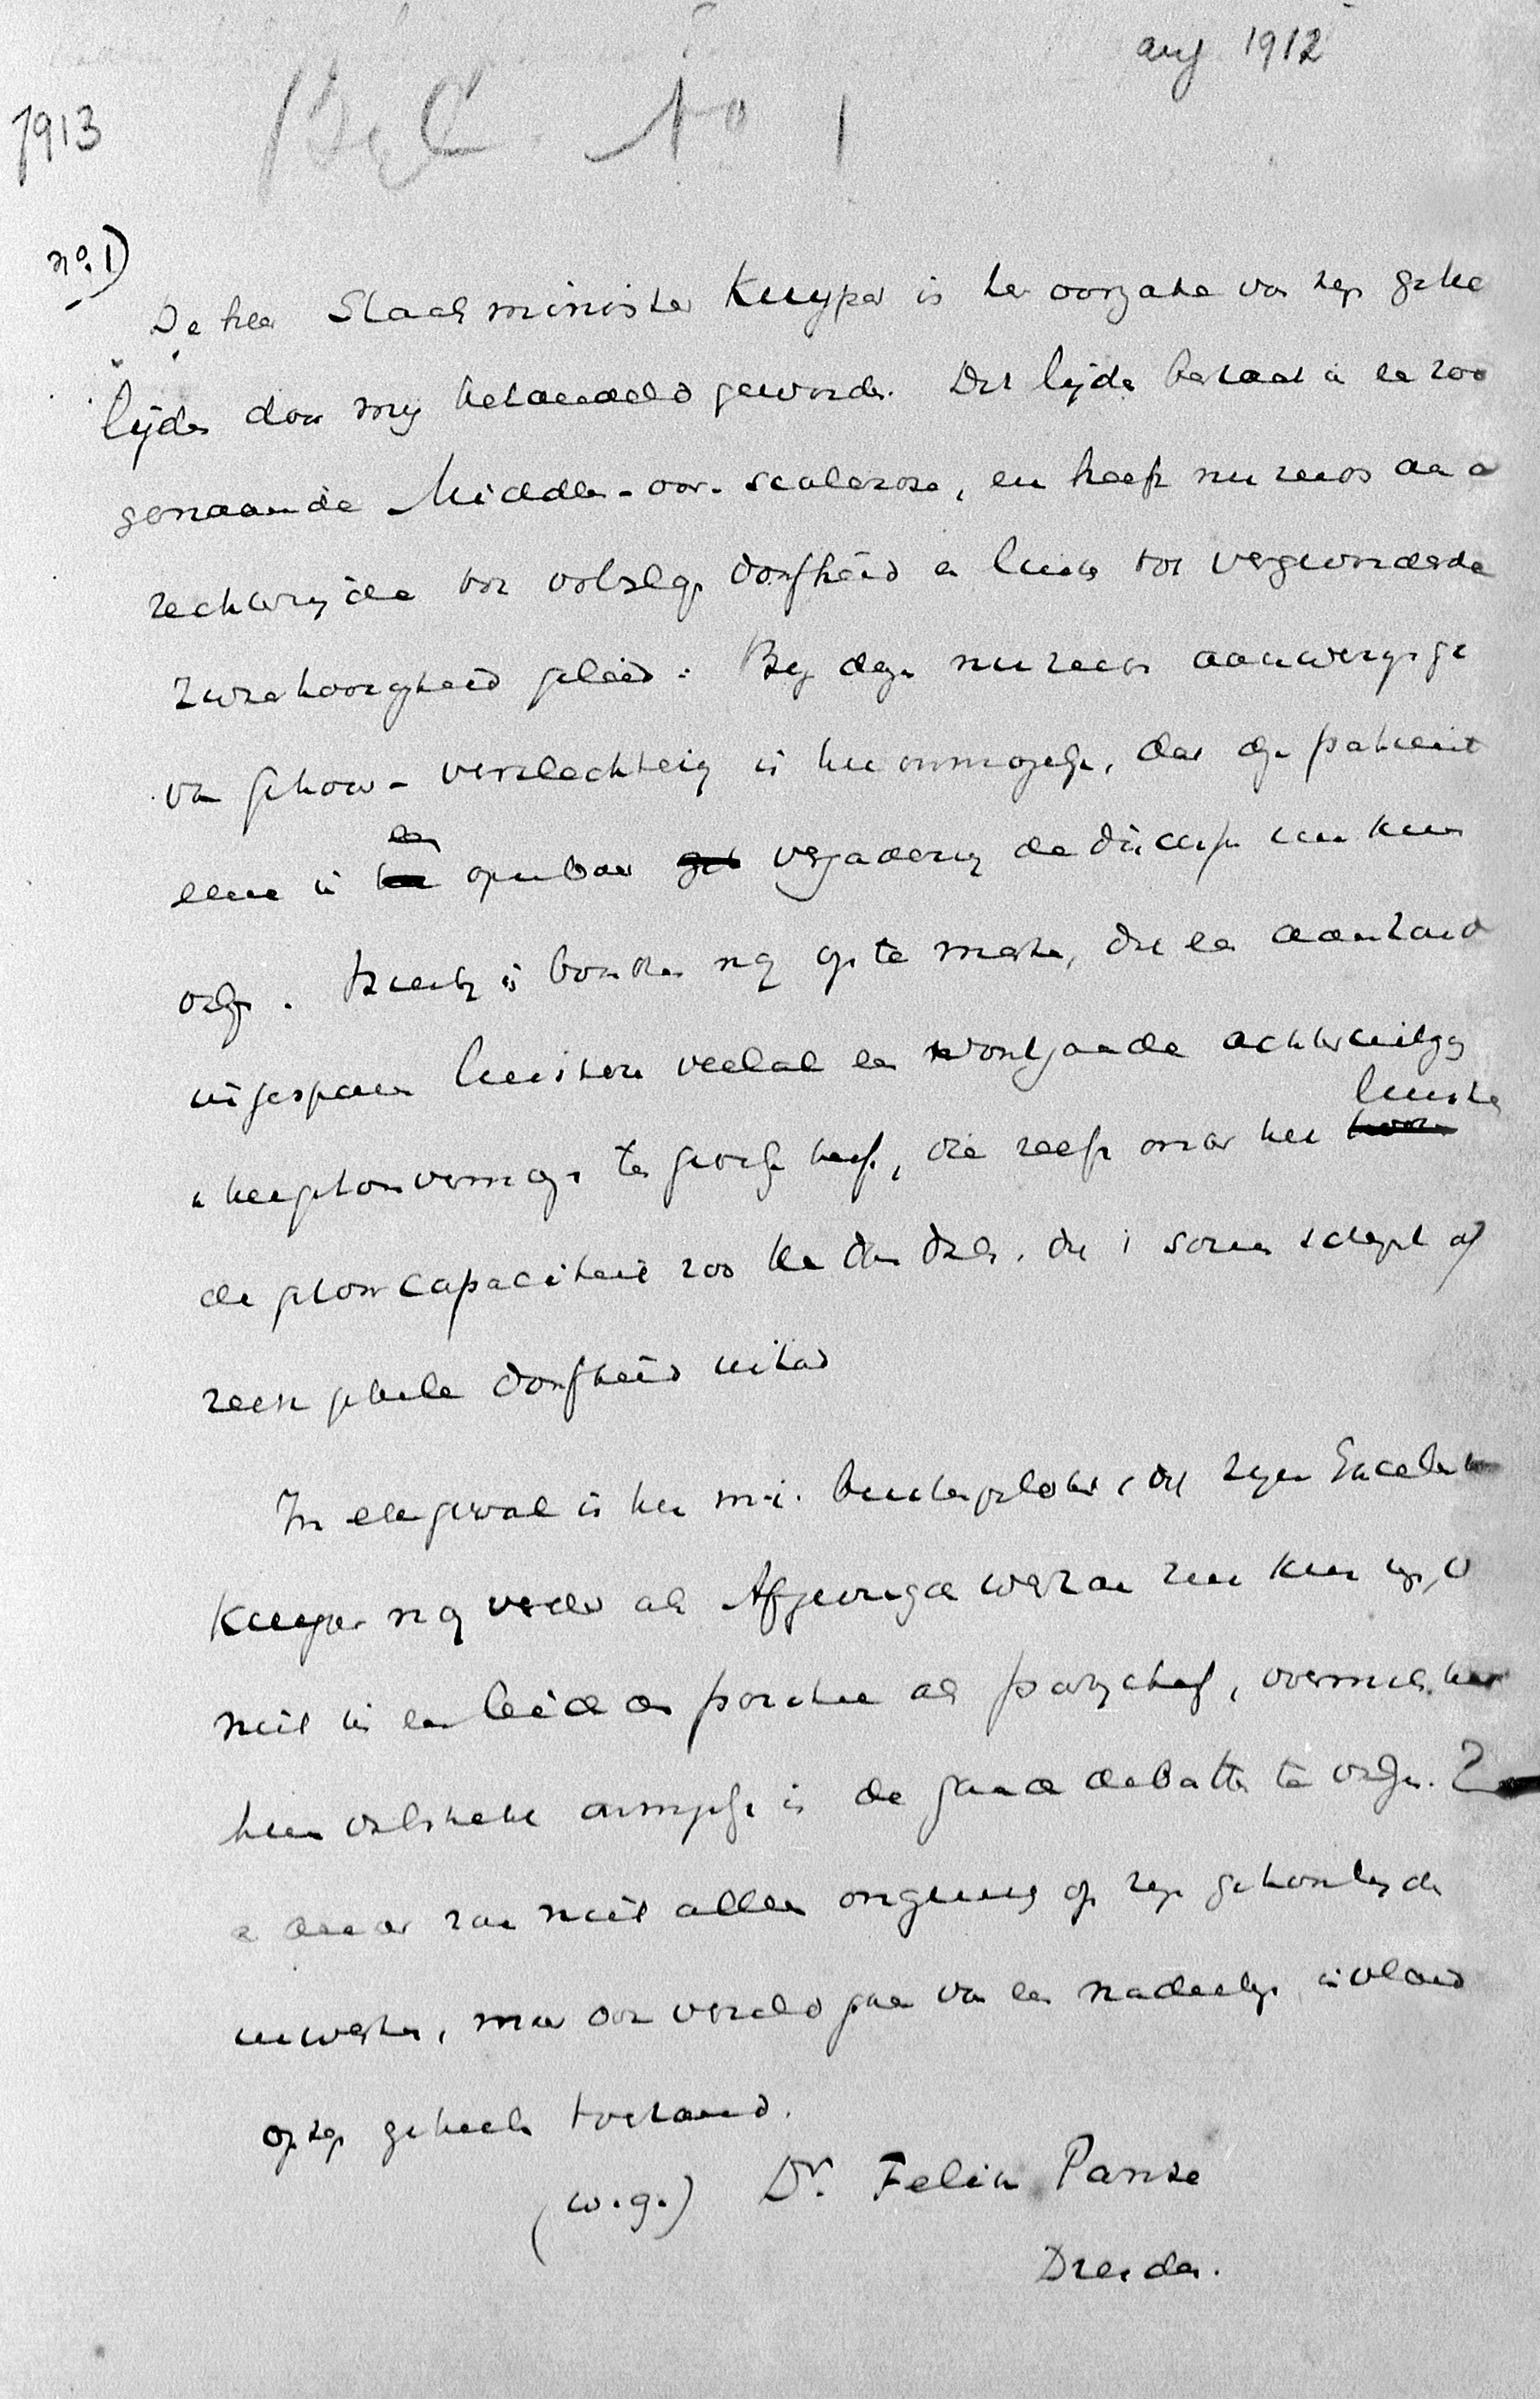 aug 1912
1913
Bijl. No 1
no. 1)
De heer Staatsminister Kuyper is ter oorzake van zijn gehoor
lijden door mij behandeld geworden. Dit lijden bestaat in een zoo
genaamde Midden-oor-sclerose, en heeft nu reeds aan
rechterzijde tot volslagen doofheid en links tot vergevorderde
zwaarhoorigheid geleid. Bij deze nu reeds aanwezige
van gehoor-verslechtering is het onmogelijk, dat deze patient
eene in een openbare vergadering de discussie zou kunnen
volgen. Hierbij is bovendien nog op te merken, dat een aanhoudend
ingespannen luisteren veelal een voortgaande achteruitgang
in het gehoorvermogen ten gevolge heeft, die zelfs onder het luisteren
de gehoorcapaciteit zoo kan doen dalen, dat i sommen schept of
reeds geheele doofheid intrad
In elk geval is het m.i. buitengesloten, dat Zijne Excellentie
Kuyper nog verder als Afgevaardigde werkzaam zou kunnen zijn,
niet in een leidende positie als partijchef, overmits het
hem volstrekt onmogelijk is de gaande debatten te volgen.
daar zou niet alleen ongunstig op zijn gehoorlijden
inwerken, maar ook verzeld gaan van een nadeeligen invloed
op zijn geheelen toestand.
(w.g.) Dr. Felix Panse
Dresden.